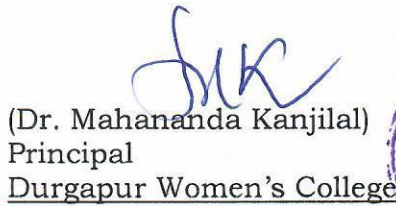 (Dr. Mahananda Kanjilal)
Principal
Durgapur Women's College